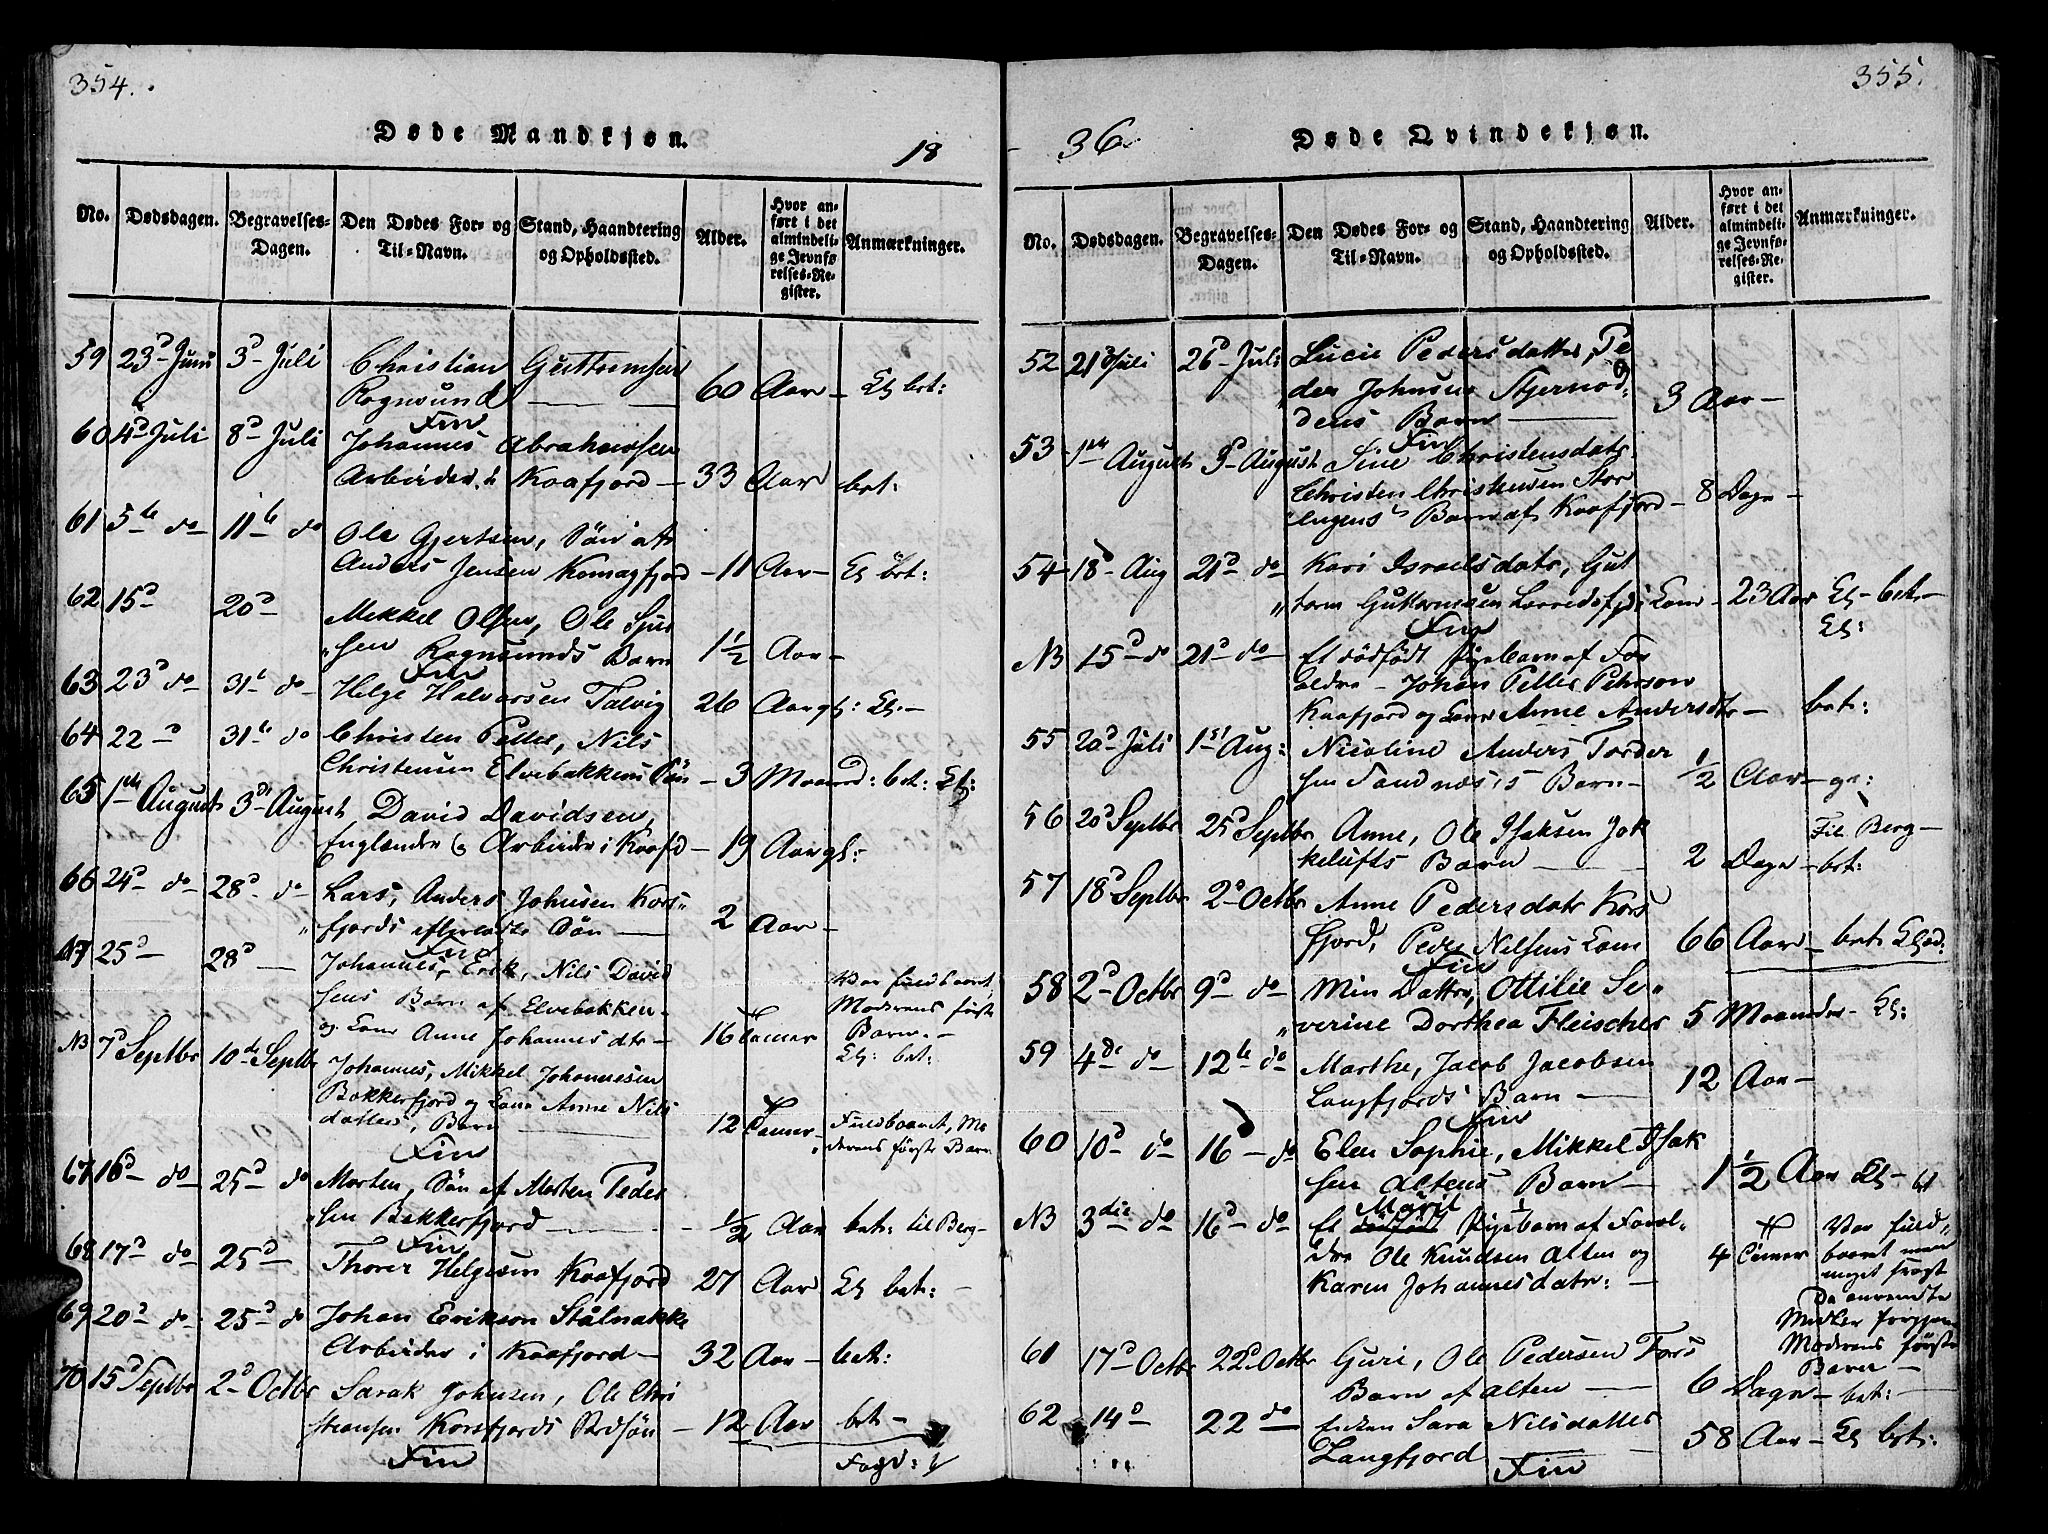 354.
Døde Mandkjøn.
18
No.
Dødsdagen.
Begravelses-
Dagen.
Den Dødes For- og
Til-Navn.
Stand, Haandtering
og Opholdssted.
Alder.
Hvor an-
ført i det
almindeli-
ge Jevnfø-
relses-Re-
gister.
Anmærkninger.
59 23d Juni 3d Juli Christian Guttormsen
Rognsund 60 Aar
Fin
60 4d Juli 8d Juli Johannes Abrahamsen
Arbeider i Kaafjord 33 Aar bet:
61 5te do 11te do Ole Gjertsen, Søn af
Anders Jensen Komagfjord 11 Aar bet:
62 15d 20d Mikkel Olsen, Ole
sen Rognsunds Barn 1 1/2 Aar
Fin
63 23d do 31te do Helge Halvorsen Talvig 26 Aar
64 22d 31te do Christen Petter, Nils
Christensen Elvebakkens Søn 3 Maaned: bet:
65 1ste August 3die August David Davidsen,
Englænder Arbeider i Kaafd 19 Aar
66 24d do 28d do Lars, Anders Johnsen Kors-
fjords Søn 2 Aar
Fin
NB 25d 28d Johannes, Erik, Nils David
sens Barn af Elvebakken
og Kone Anne Johannesdtr 16 Timer
Var fuldbaaret,
Moderens første
Barn
bet:
NB 7d Septbr 10de Septbr Johannes, Mikkel Johannesen
Bekkerfjord og Kone Anne Nils
datters Barn 12 Timer
Fuldbaaret, Mo
derens første Barn
Fin
67 16d do 25d do Morten, Søn af Morten Peder
sen Bekkerfjord 1/2 Aar bet: til Berg
Fin
68 17d do 25d Thorer Helgesen Kaafjord 27 Aar bet:
69 20d do 25d do Johan Erikson Stålnakke
Arbeider i Kaafjord 32 Aar bet:
70 15d Septbr 2d Octbr Sarak Johnsen, Ole Chri
stiansen Korsfjords 12 Aar bet
Fin
36
355.
Døde Qvindekjøn.
No.
Dødsdagen.
Begravelses-
Dagen.
Den Dødes For- og
Til-Navn.
Stand, Haandtering
og Opholdssted.
Alder.
Hvor an-
ført i det
almindeli-
ge Jevnfø-
relses-Re-
gister.
Anmærkninger.
52 21d Juli 26d Juli Lucie Pedersdatter, Pe
der Johnsens Stjernød
dens Barn 3 Aar
Fin
53 1ste August August Sine Christensdatr
Christen Christensen Stor
engens Barn af Kaafjord 8 Dage
54 18d Aug 21d do Kari Israelsdatr, Gut
torm Guttormsen Kone 23 Aar bet
Fin
NB 15d do 21d do Et dödfödt Pigebarn af For
ældre Johan Petter Pehrson
Kaafjord og Kone Anne Andersdtr bet:
55 20d Juli 1st Aug: Nicoline Anders Torder
sen Sandnæs's Barn 1/2 Aar
56 20d Septbr 25d Septbr Anne, Ole Isaksen Jok
kelufts Barn 2 Dage
Til Berg
bet:
57 18d Septbr 2d Octbr Anne Pedersdatr Kors
fjord, Peder Nilsens Kone 66 Aar bet
Fin
58 2d Octbr 9d do Min Datter, Ottilie Se-
verine Dorthea Fleischer 5 Maaneder
59 4de do 12te do Marthe, Jacob Jacobsen
Langfjords Barn 12 Aar
Fin
60 10d do 16 do Elen Sophie, Mikkel Isak
sen Altens Barn 1 1/2 Aar
NB 3die do 16d do Et Marit Pigebarn af Foræl-
dre Ole Knudsen Alten og
Karen Johannesdatr: 4 Timer
Var fuld-
baaret men
meget svagt
Da anvendte
Midler
Moderens første
Barn
61 17d Octbr 22d Octbr Guri, Ole Pedersen Fors
Barn af Alten 6 Dage bet:
62 14d 22 do Enken Sara Nilsdatter
Langfjord 58 Aar bet:
Fin